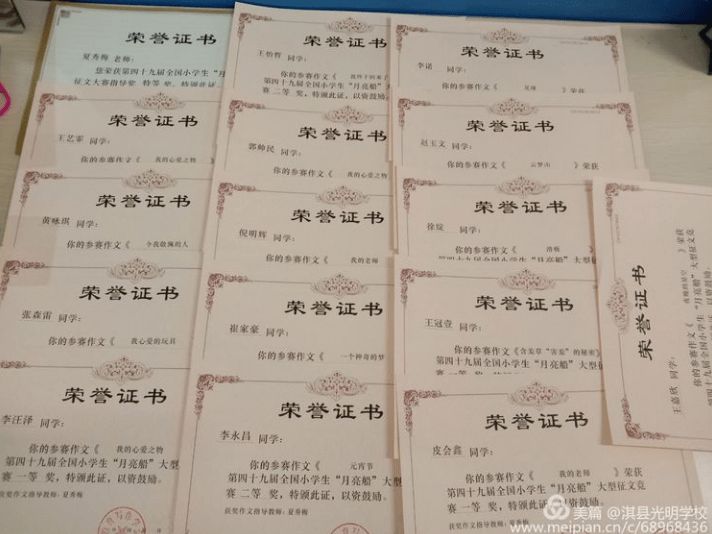 荣誉证书
夏秀梅 老师：
您荣获第四十九届全国小学生“月亮船”
征文大赛指导奖 特等 奖，特颁此证
荣誉证书
王艺霏 同学：
你的参赛作文《 我的心爱之物
荣誉证书
黄咏琪 同学：
你的参赛作文《 令我敬佩的人
荣誉证书
张森雷 同学：
你的参赛作文《 我心爱的玩具
荣誉证书
李汪泽 同学：
你的参赛作文《 我的心爱之物
第四十九届全国小学生“月亮船”大型
赛 一等 奖，特颁此证，以资鼓励。
获奖作文指导教师：夏秀梅
荣誉证书
王怡哲 同学：
你的参赛作文《
第四十九届全国小学生“月亮船”
赛 二等 奖，特颁此证，以资鼓励
荣誉证书
郭帅民 同学：
你的参赛作文《 我的心爱之物
荣誉证书
倪明辉 同学：
你的参赛作文《 我的老师
荣誉证书
崔家豪 同学：
你的参赛作文《 一个神奇的梦
荣誉证书
李永昌 同学：
你的参赛作文《 元宵节
第四十九届全国小学生“月亮船”大型
赛 二等 奖，特颁此证，以资鼓励。
获奖作文指导教师：夏秀梅
荣誉证书
李诺 同学：
你的参赛作文《 》荣获
荣誉证书
赵玉文 同学：
你的参赛作文《 云梦山 》荣获
荣誉证书
徐绽 同学：
你的参赛作文《 》荣获
第四十九届全国小学生“月亮船”大型征文竞
荣誉证书
王冠壹 同学：
你的参赛作文《含羞草“害羞”的秘密》荣获
第四十九届全国小学生“月亮船”大型征文竞
赛 一等 奖，特颁此证，以资鼓励。
荣誉证书
皮会鑫 同学：
你的参赛作文《 我的老师 》荣获
第四十九届全国小学生“月亮船”大型征文竞
赛 二等 奖，特颁此证，以资鼓励。
获奖作文指导教师：夏秀梅
荣誉证书
王嘉欣 同学：
你的参赛作文《 》荣获
第四十九届全国小学生“月亮船”大型征文竞
美篇 @淇县光明学校
www.meipian.cn/c/68968436